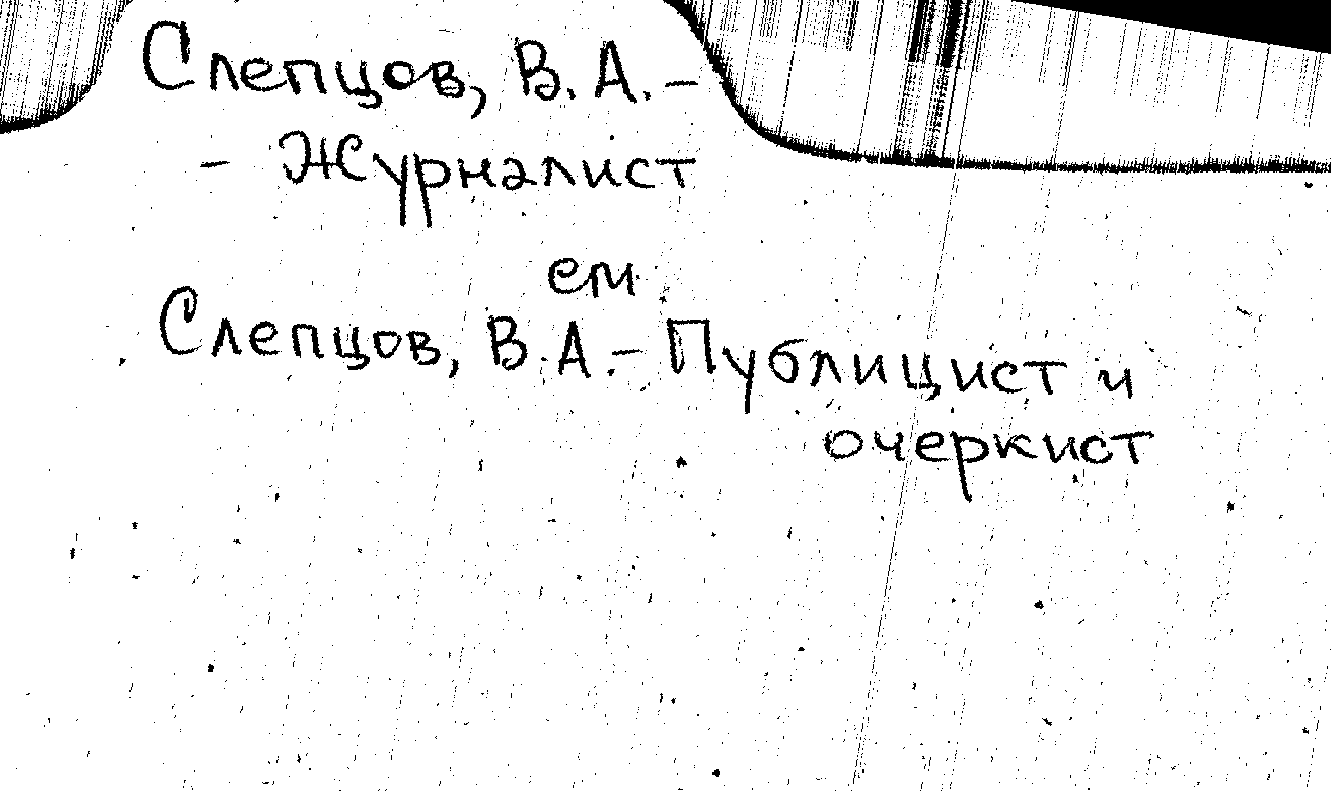 Слепцов, В. А. –
– Журналист
ем
Слепцов, В. А. – Публицист и
очеркист